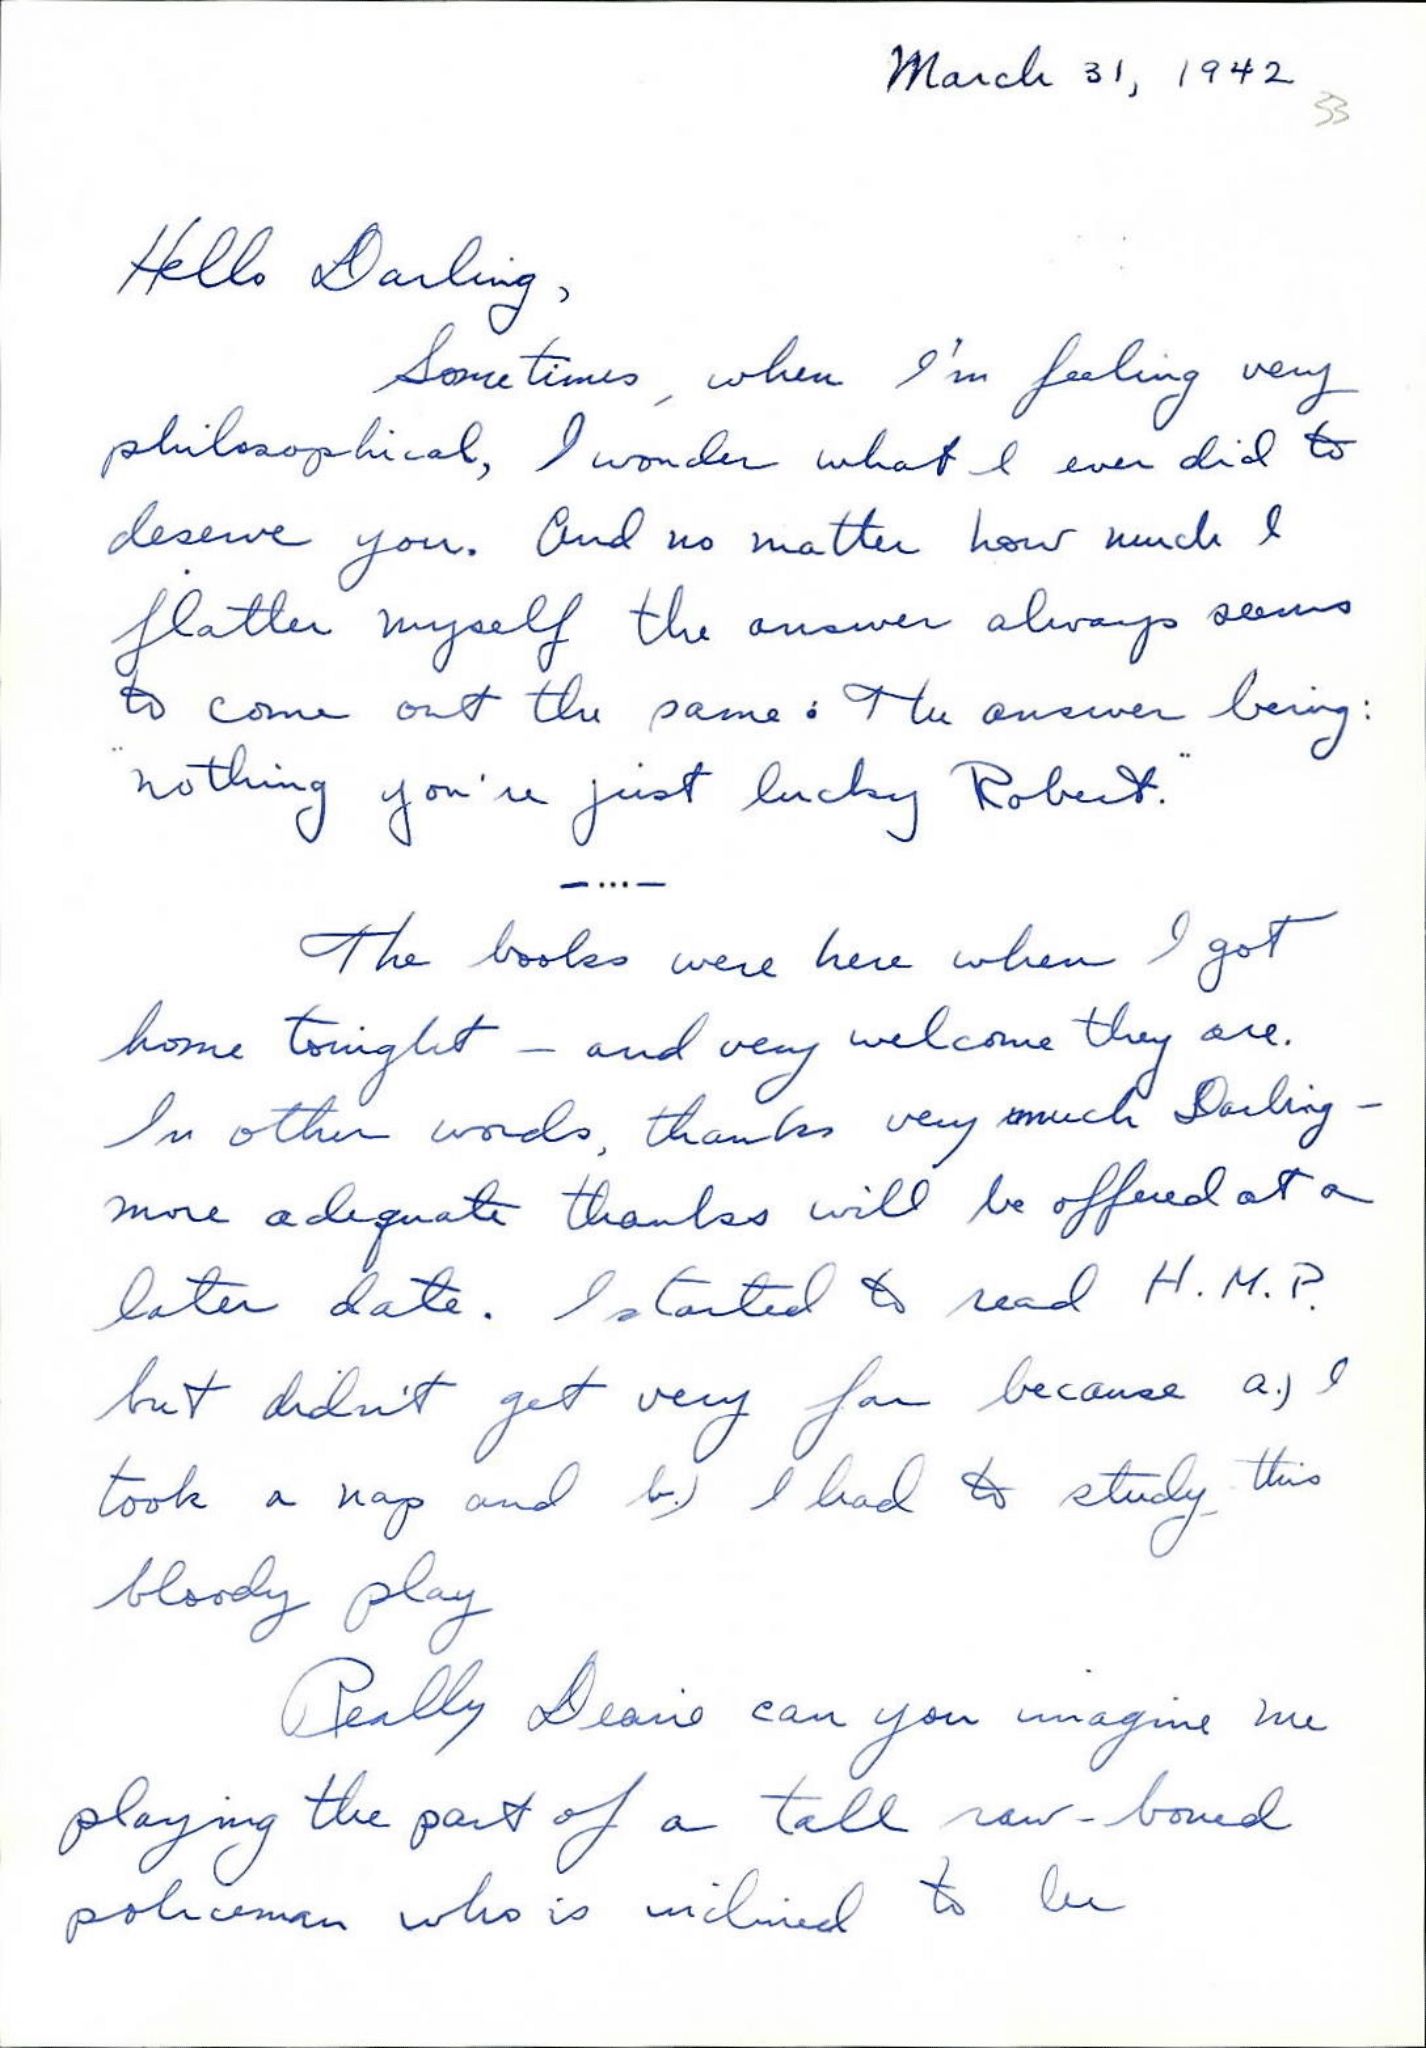 March 31, 1942
53
Hello Darling,
Sometimes, when I'm feeling very
philosophical, I wonder what I ever did to
deserve you. And no matter how much I
flatter myself the answer always seems
to come out the same: The answer being:
"nothing you're just lucky Robert."
—...—
The books were here when I got
home tonight – and very welcome they are.
In other words, thanks very much Darling –
more adequate thanks will be offered at a
later date. I started to read H.M.P.
but didn't get very far because a.) I
took a nap and b.) I had to study this
bloody play
Really Dearie can you imagine me
playing the part of a tall raw-boned
policeman who is inclined to be